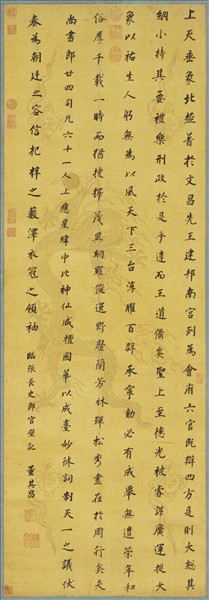 上天垂象北極著於文昌先王建邦南宮列為會府六官既辨四方是則大總其
綱小持其要禮樂刑政於是乎達而王道備矣聖上至德光被睿謀廣運提大
象以祐生人躬無為以風天下三台淳耀百辟承寧動必有成舉無遺策年和
俗厚千載一時而猶搜擇茂異網羅俊逸野罄蘭芳林殫松秀盡在於周行矣夫
尚書郎廿四司凡六十一人上應星緯中比神仙咸擅國華以成臺妙修詞制天一之議伏
奏為朝廷之容信杞梓之藪澤衣冠之領袖 臨張長史郎官壁記 董其昌